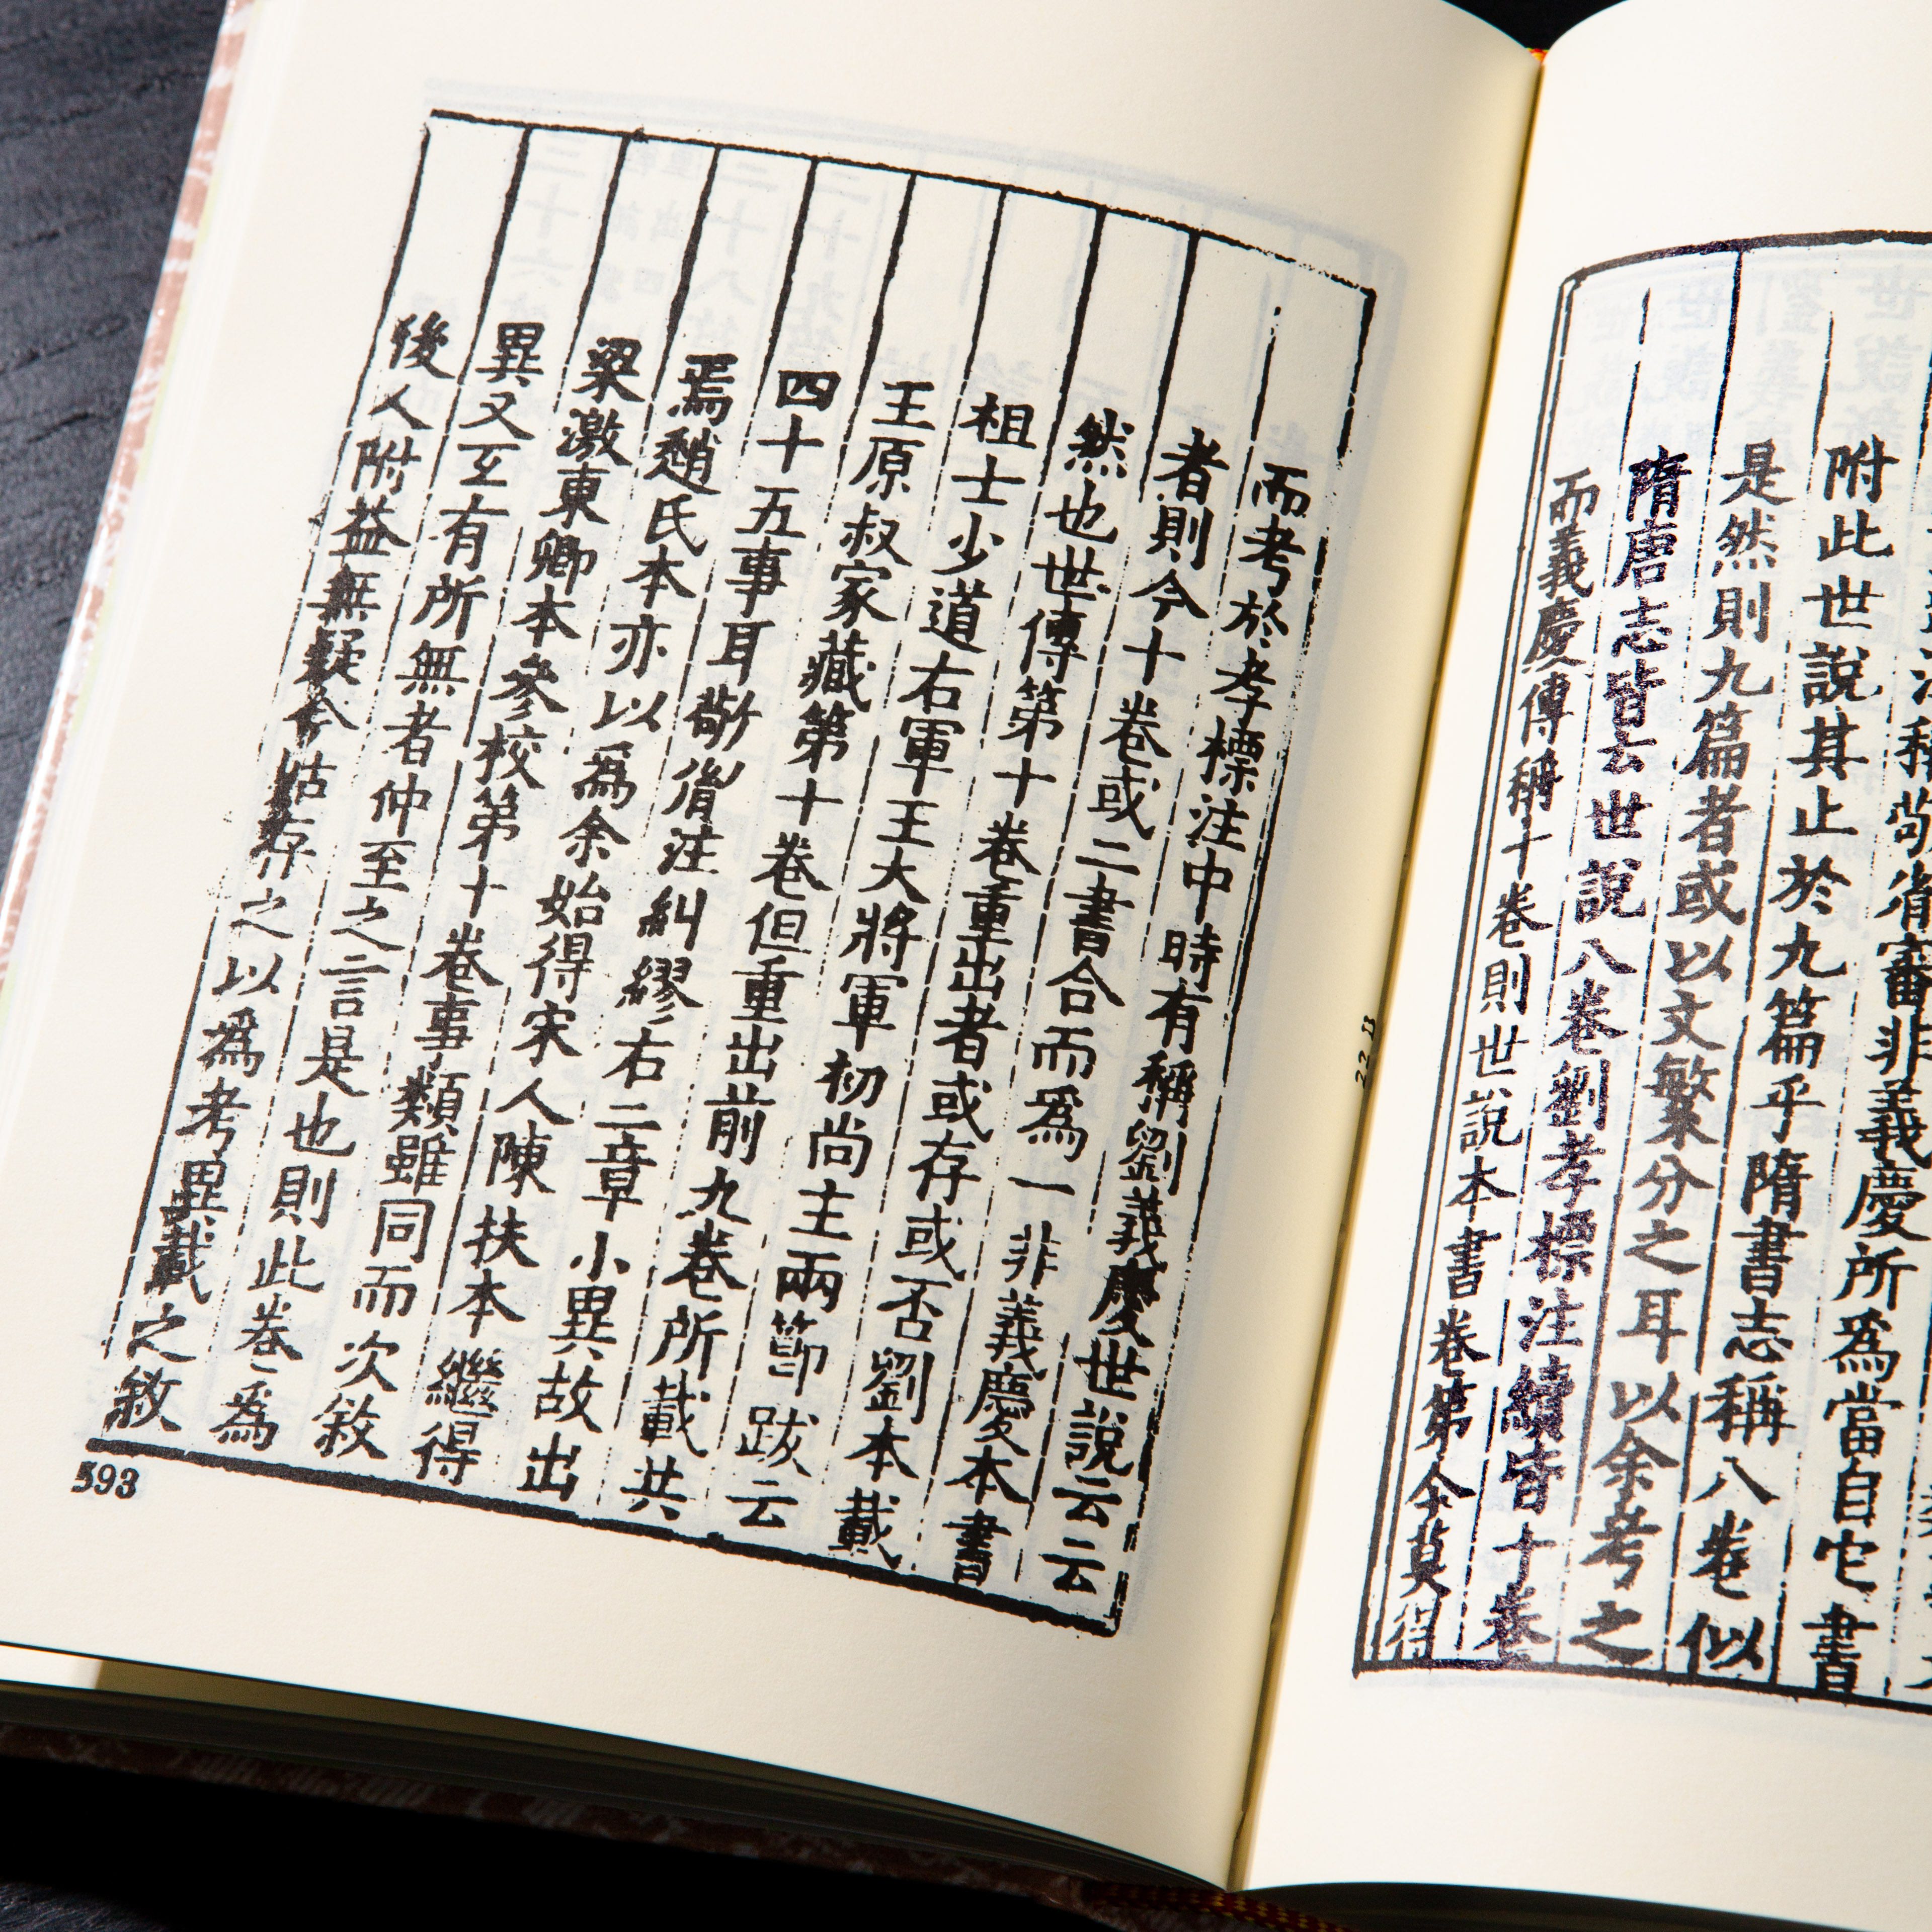 注稱敬胤審非義慶所爲當自它書
附此世說其止於九篇乎隋書志稱八卷似
是然則九篇者或以文繁分之耳以余考之
隋唐志皆云世說八卷劉孝標注續皆十卷
而義慶傳稱十卷則世說本書卷第今莫得
而考於孝標注中時有稱劉義慶世說云云
者則今十卷或二書合而爲一非義慶本書
然也世傳第十卷重出者或存或否劉本載
祖士少道右軍王大將軍初尚主兩節跋云
王原叔家藏第十卷但重出前九卷所載共
四十五事耳敬胤注糾繆右二章小異故出
焉趙氏本亦以爲余始得宋人陳扶本繼得
梁激東卿本參校第十卷事類雖同而次敘
異又互有所無者仲至之言是也則此卷爲
後人附益無疑今姑存之以爲考異載之敘
593